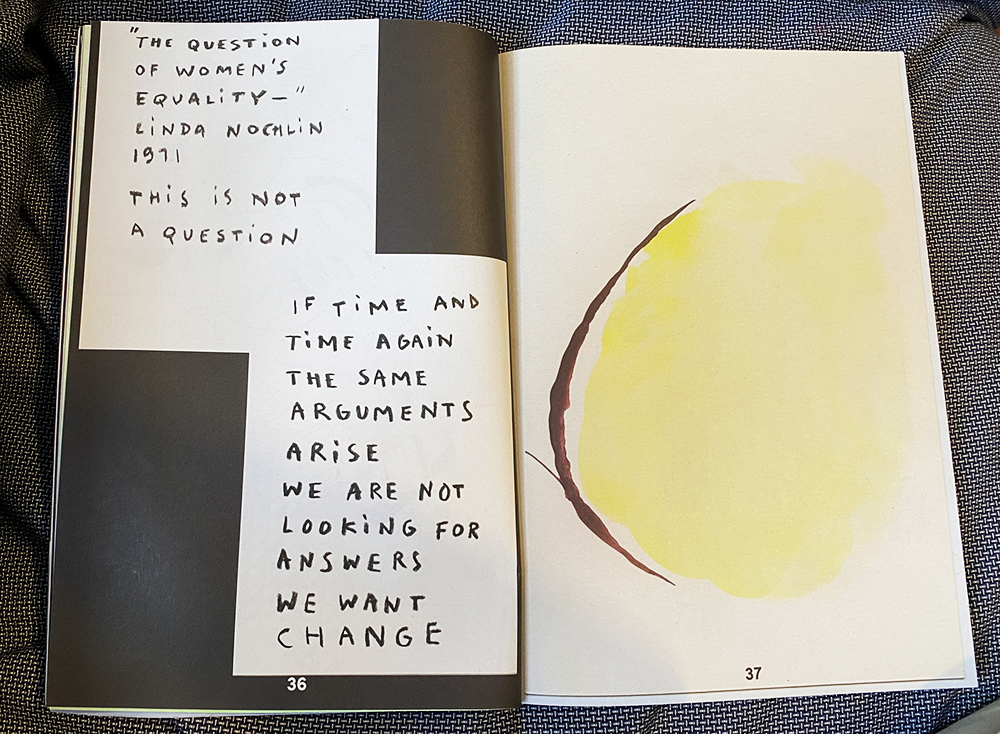 "THE QUESTION
OF WOMEN'S
EQUALITY—"
LINDA NOCHLIN
1971
THIS IS NOT
A QUESTION
IF TIME AND
TIME AGAIN
THE SAME
ARGUMENTS
ARISE
WE ARE NOT
LOOKING FOR
ANSWERS
WE WANT
CHANGE
36
37